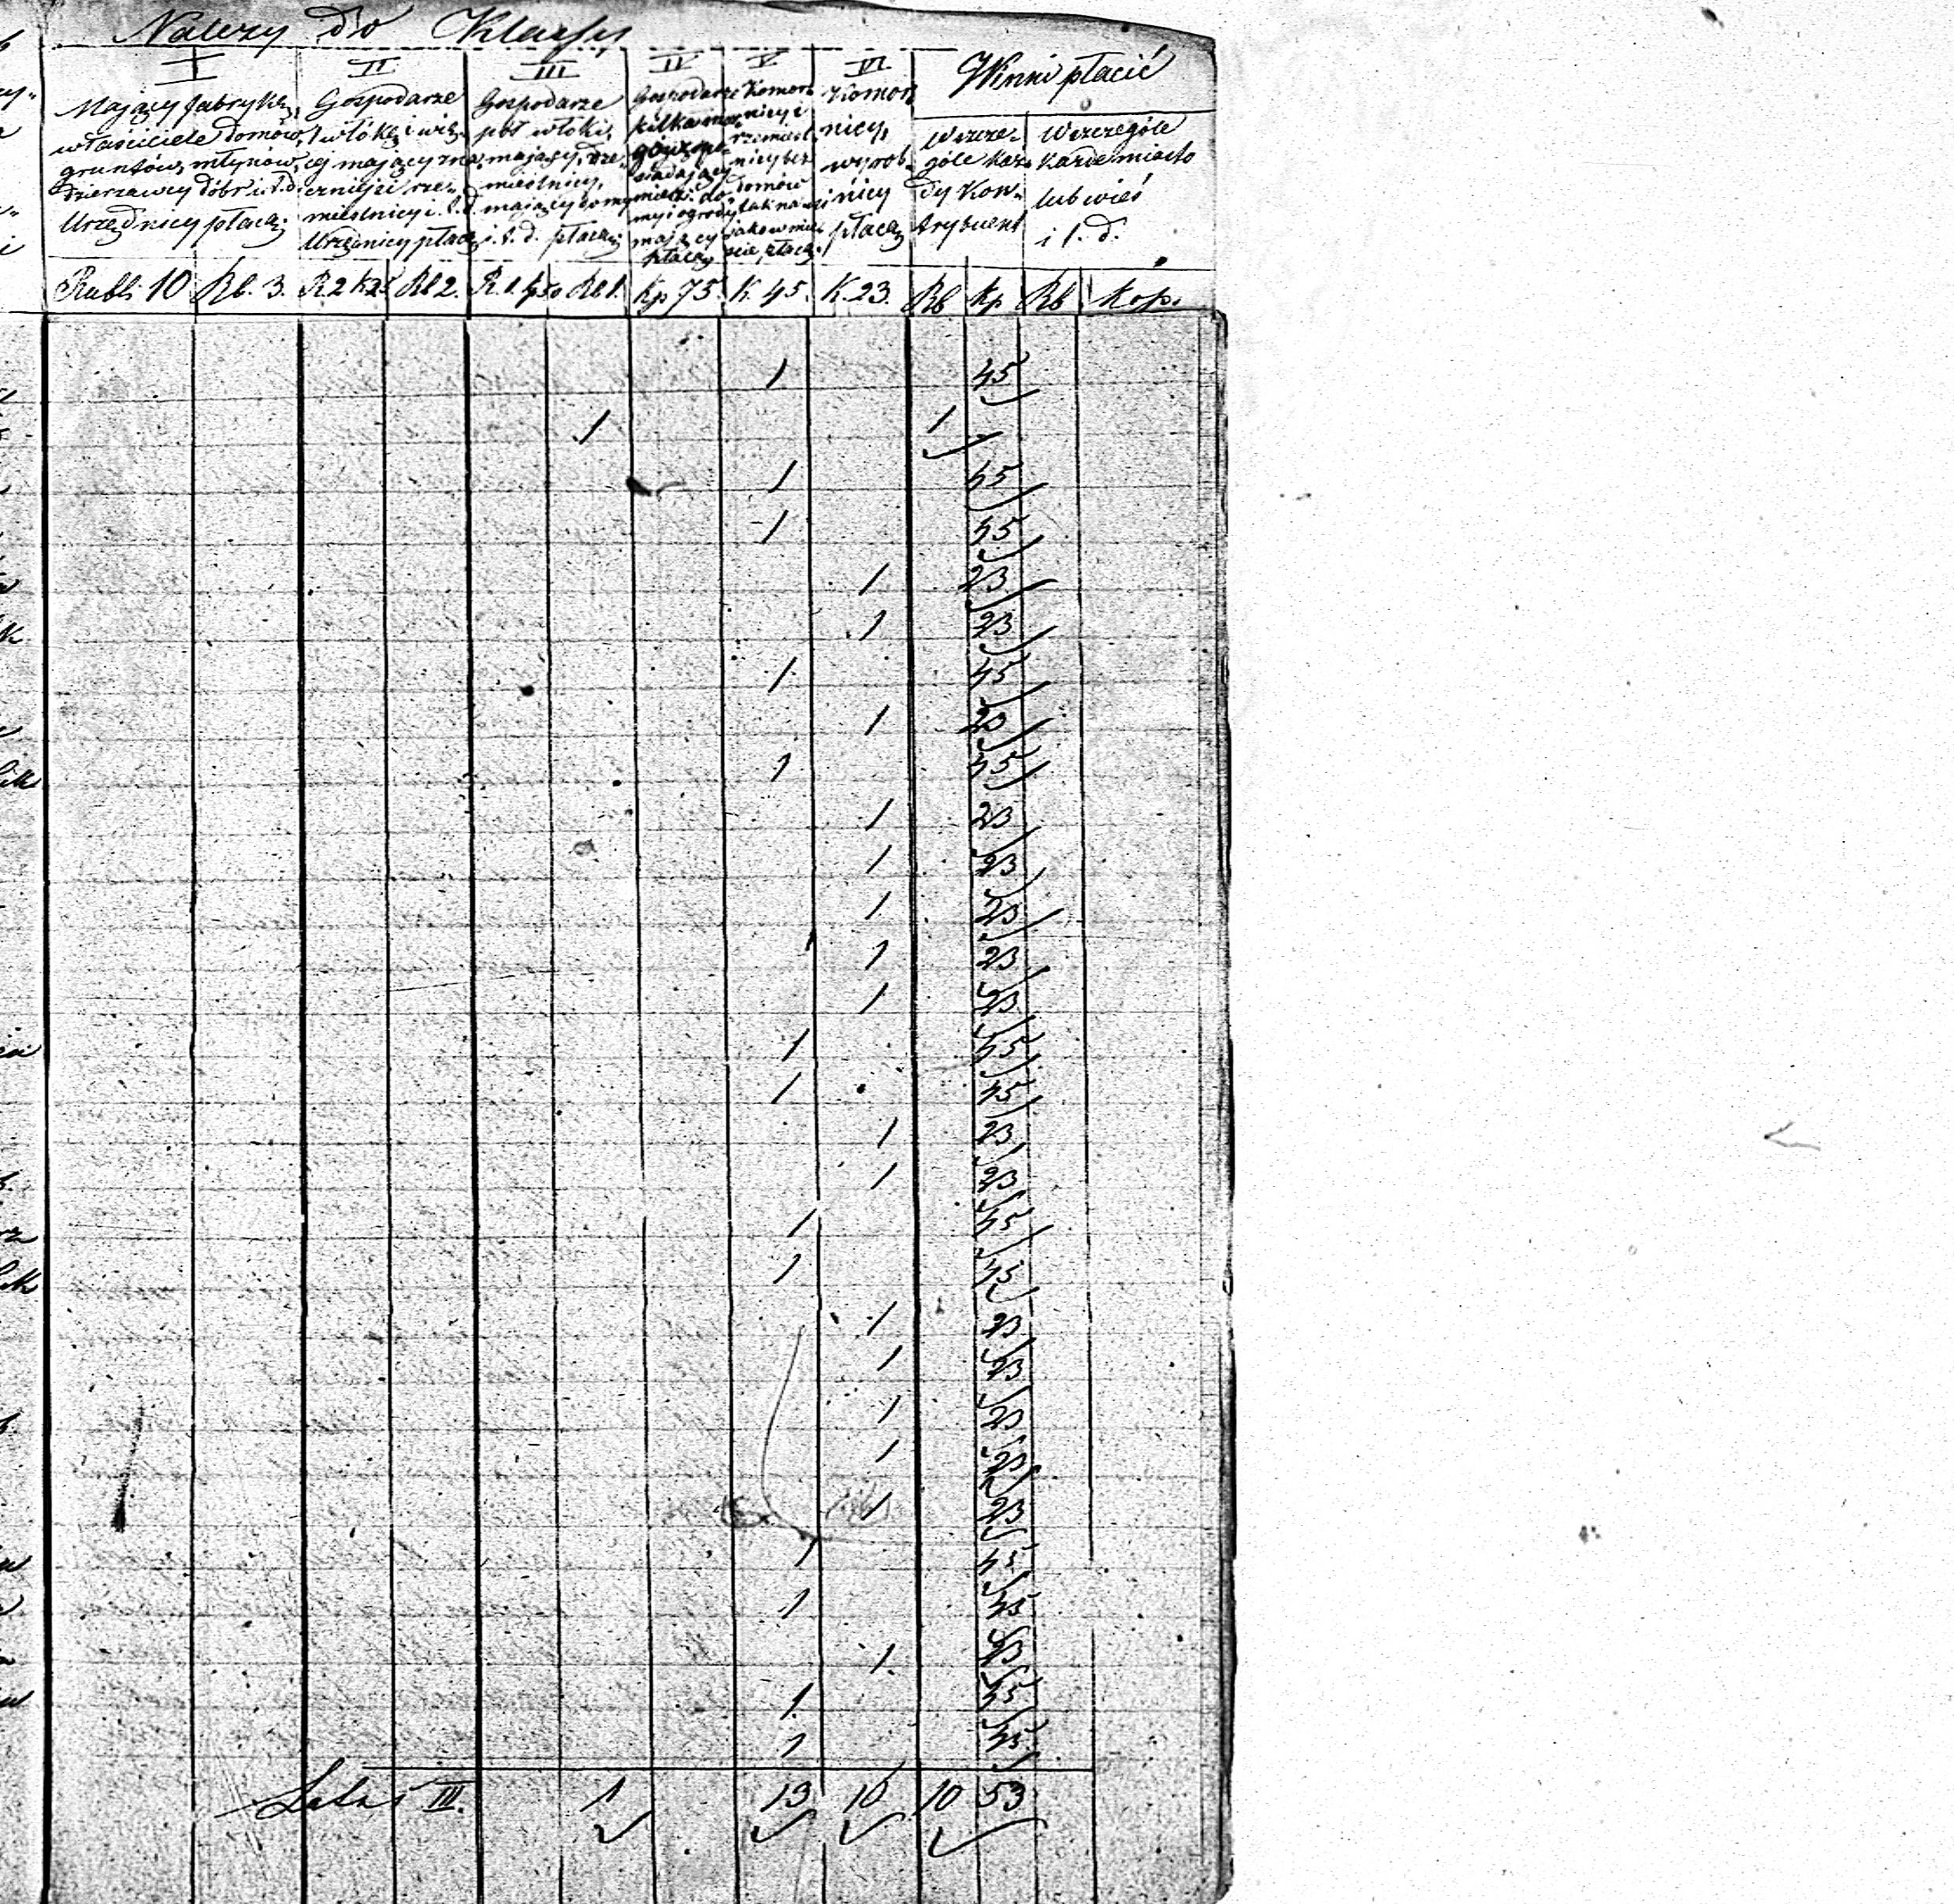 Należy do Klassy
I II III IV V VI Winni płacić
Mający fabrykę, właściciele domów, gruntów, młynów, dzierżawcy dóbr i t. d. Urzędnicy płacą
Gospodarze 1 włókę i więcej mający znaczniejsi rzemieślnicy i t. d. Urzędnicy płacą
Gospodarze pół włóki mający, rzemieślnicy, mający domy i t. d. płacą
Gospodarze kilka morgów posiadający domy i ogrody mający płacą
Komornicy i rzemieślnicy bez domów tak na wsi jako w mieście płacą
Komornicy, wyrobnicy płacą
W szczególe każdy Kontrybuent
W szczególe każde miasto lub wieś i t. d.
Rubli 10 Rb. 3. R. 2 k 25 Rb 2. R. 1. kp 50 Rb 1. Kp 75. K. 45. K. 23. Rb Kp Rb Kop.
1 45
1 1
1 45
1 45
1 23
1 23
1 45
1 23
1 45
1 23
1 23
1 23
1 23
1 23
1 45
1 45
1 23
1 23
1 45
1 45
1 23
1 23
1 23
1 23
1 23
1 45
1 45
1 23
1 45
1 45
Latus III. 1 13 16 10 53